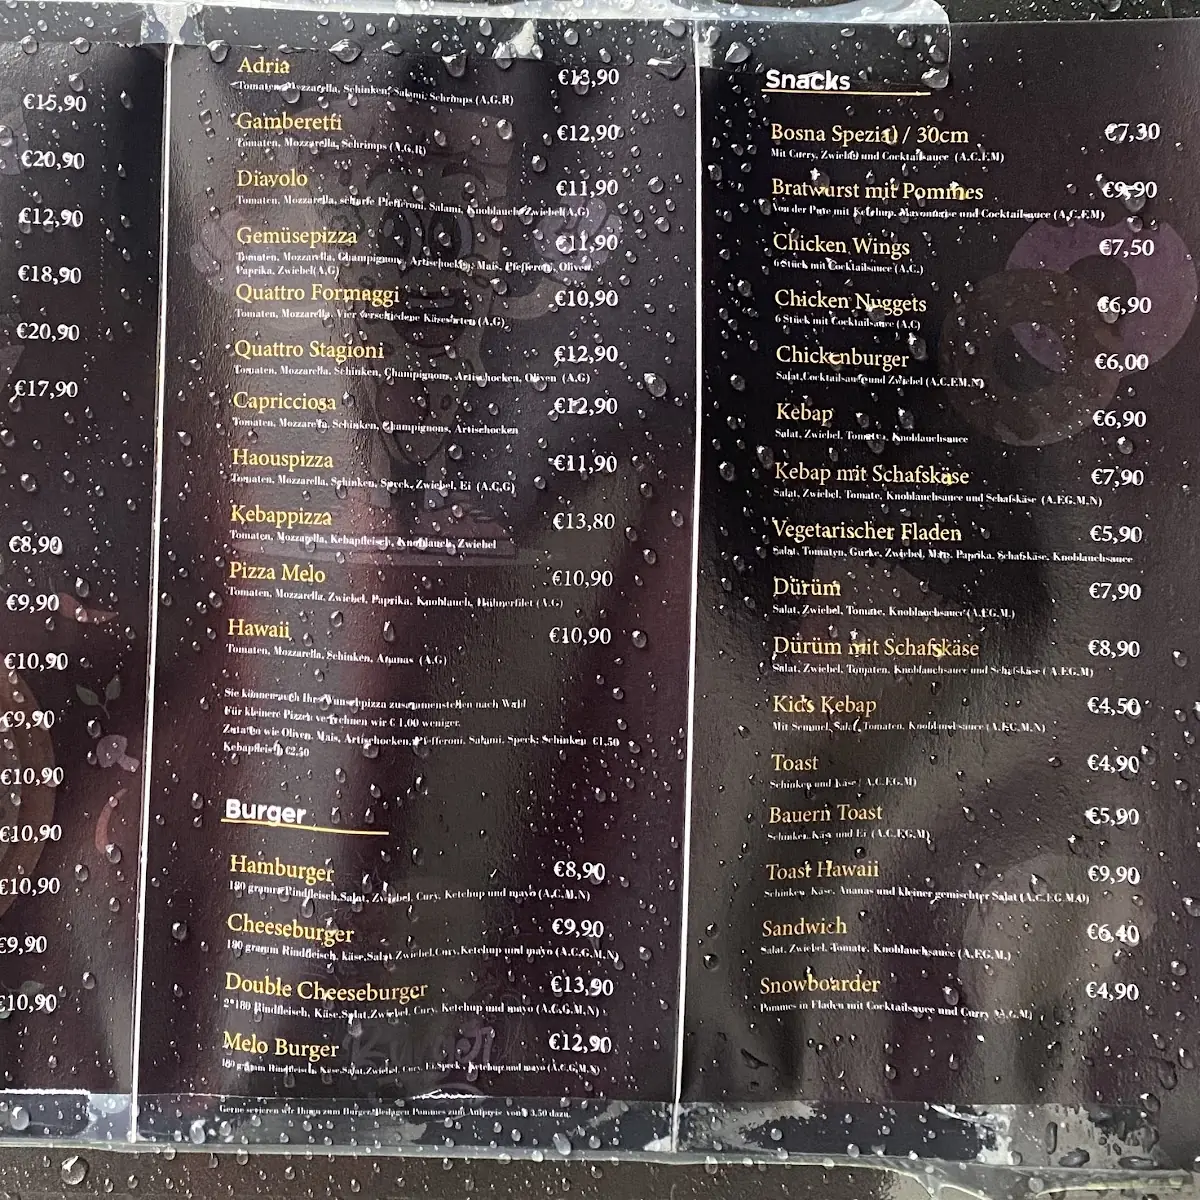 €15,90
€20,90
€12,90
€18,90
€20,90
€17,90
€8,90
€9,90
€10,90
€9,90
€10,90
€10,90
€10,90
€9,90
€10,90
Adria €13,90
Tomaten, Mozzarella, Schinken, Salami, Schrimps (A,G,R)
Gamberetti €12,90
Tomaten, Mozzarella, Schrimps (A,G,R)
Diavolo €11,90
Tomaten, Mozzarella, scharfe Pfefferoni, Salami, Knoblauch, Zwiebel(A,G)
Gemüsepizza €11,90
Tomaten, Mozzarella, Champignon, Artischocken, Mais, Pfefferoni, Oliven,
Paprika, Zwiebel(A,G)
Quattro Formaggi €10,90
Tomaten, Mozzarella, Vier verschiedene Käsesorten (A,G)
Quattro Stagioni €12,90
Tomaten, Mozzarella, Schinken, Champignons, Artischocken, Oliven (A,G)
Capricciosa €12,90
Tomaten, Mozzarella, Schinken, Champignons, Artischocken
Haouspizza €11,90
Tomaten, Mozzarella, Schinken, Speck, Zwiebel, Ei (A,C,G)
Kebappizza €13,80
Tomaten, Mozzarella, Kebapfleisch, Knoblauch, Zwiebel
Pizza Melo €10,90
Tomaten, Mozzarella, Zwiebel, Paprika, Knoblauch, Hühnerfilet (A,G)
Hawaii €10,90
Tomaten, Mozzarella, Schinken, Ananas (A,G)
Sie können auch Ihre Wunschpizza zusammenstellen nach Wahl
Für kleinere Pizzen verrechnen wir € 1,00 weniger.
Zutaten wie Oliven, Mais, Artischocken, Pfefferoni, Salami, Speck, Schinken €1,50
Kebapfleisch €2,50
Burger
Hamburger €8,90
180 gramm Rindfleisch,Salat, Zwiebel, Cury, Ketchup und mayo (A,C,M,N)
Cheeseburger €9,90
180 gramm Rindfleisch, käse,Salat,Zwiebel,Cury,Ketchup und mayo (A,C,G,M,N)
Double Cheeseburger €13,90
2*180 Rindfleisch, Käse,Salat,Zwiebel, Cury, Ketchup und mayo (A,C,G,M,N)
Melo Burger €12,90
180 gramm Rindfleisch, Käse,Salat,Zwiebel, Cury, Ei,Speck, Ketchup und mayo (A,C,G,M,N)
Gerne servieren wir Ihnen zum Burger Beilagen Pommes zum Aufpreis von € 3,50 dazu.
Snacks
Bosna Spezial / 30cm €7,30
Mit Curry, Zwiebel und Cocktailsauce (A,C,F,M)
Bratwurst mit Pommes €9,90
Von der Pute mit Ketchup, Mayonnaise und Cocktailsauce (A,C,F,M)
Chicken Wings €7,50
6 Stück mit Cocktailsauce (A,C,)
Chicken Nuggets €6,90
6 Stück mit Cocktailsauce (A,C)
Chickenburger €6,00
Salat,Cocktailsauce und Zwiebel (A,C,F,M,N)
Kebap €6,90
Salat, Zwiebel, Tomaten, Knoblauchsauce
Kebap mit Schafskäse €7,90
Salat, Zwiebel, Tomate, Knoblauchsauce und Schafskäse (A,F,G,M,N)
Vegetarischer Fladen €5,90
Salat, Tomaten, Gurke, Zwiebel, Mais, Paprika, Schafskäse, Knoblauchsauce
Dürüm €7,90
Salat, Zwiebel, Tomate, Knoblauchsauce (A,F,G,M,)
Dürüm mit Schafskäse €8,90
Salat, Zwiebel, Tomaten, Knoblauchsauce und Schafskäse ( A,F,G,M)
Kid's Kebap €4,50
Mit Semmel, Salat, Tomaten, Knoblauchsauce (A,F,G,M,N)
Toast €4,90
Schinken und Käse ( A,C,F,G,M)
Bauern Toast €5,90
Schinken, Käse und Ei (A,C,F,G,M)
Toast Hawaii €9,90
Schinken, Käse, Ananas und kleiner gemischter Salat (A,C,F,G,M,O)
Sandwich €6,40
Salat, Zwiebel, Tomate, Knoblauchsauce (A,F,G,M,)
Snowboarder €4,90
Pommes in Fladen mit Cocktailsauce und Curry (A,G,M)